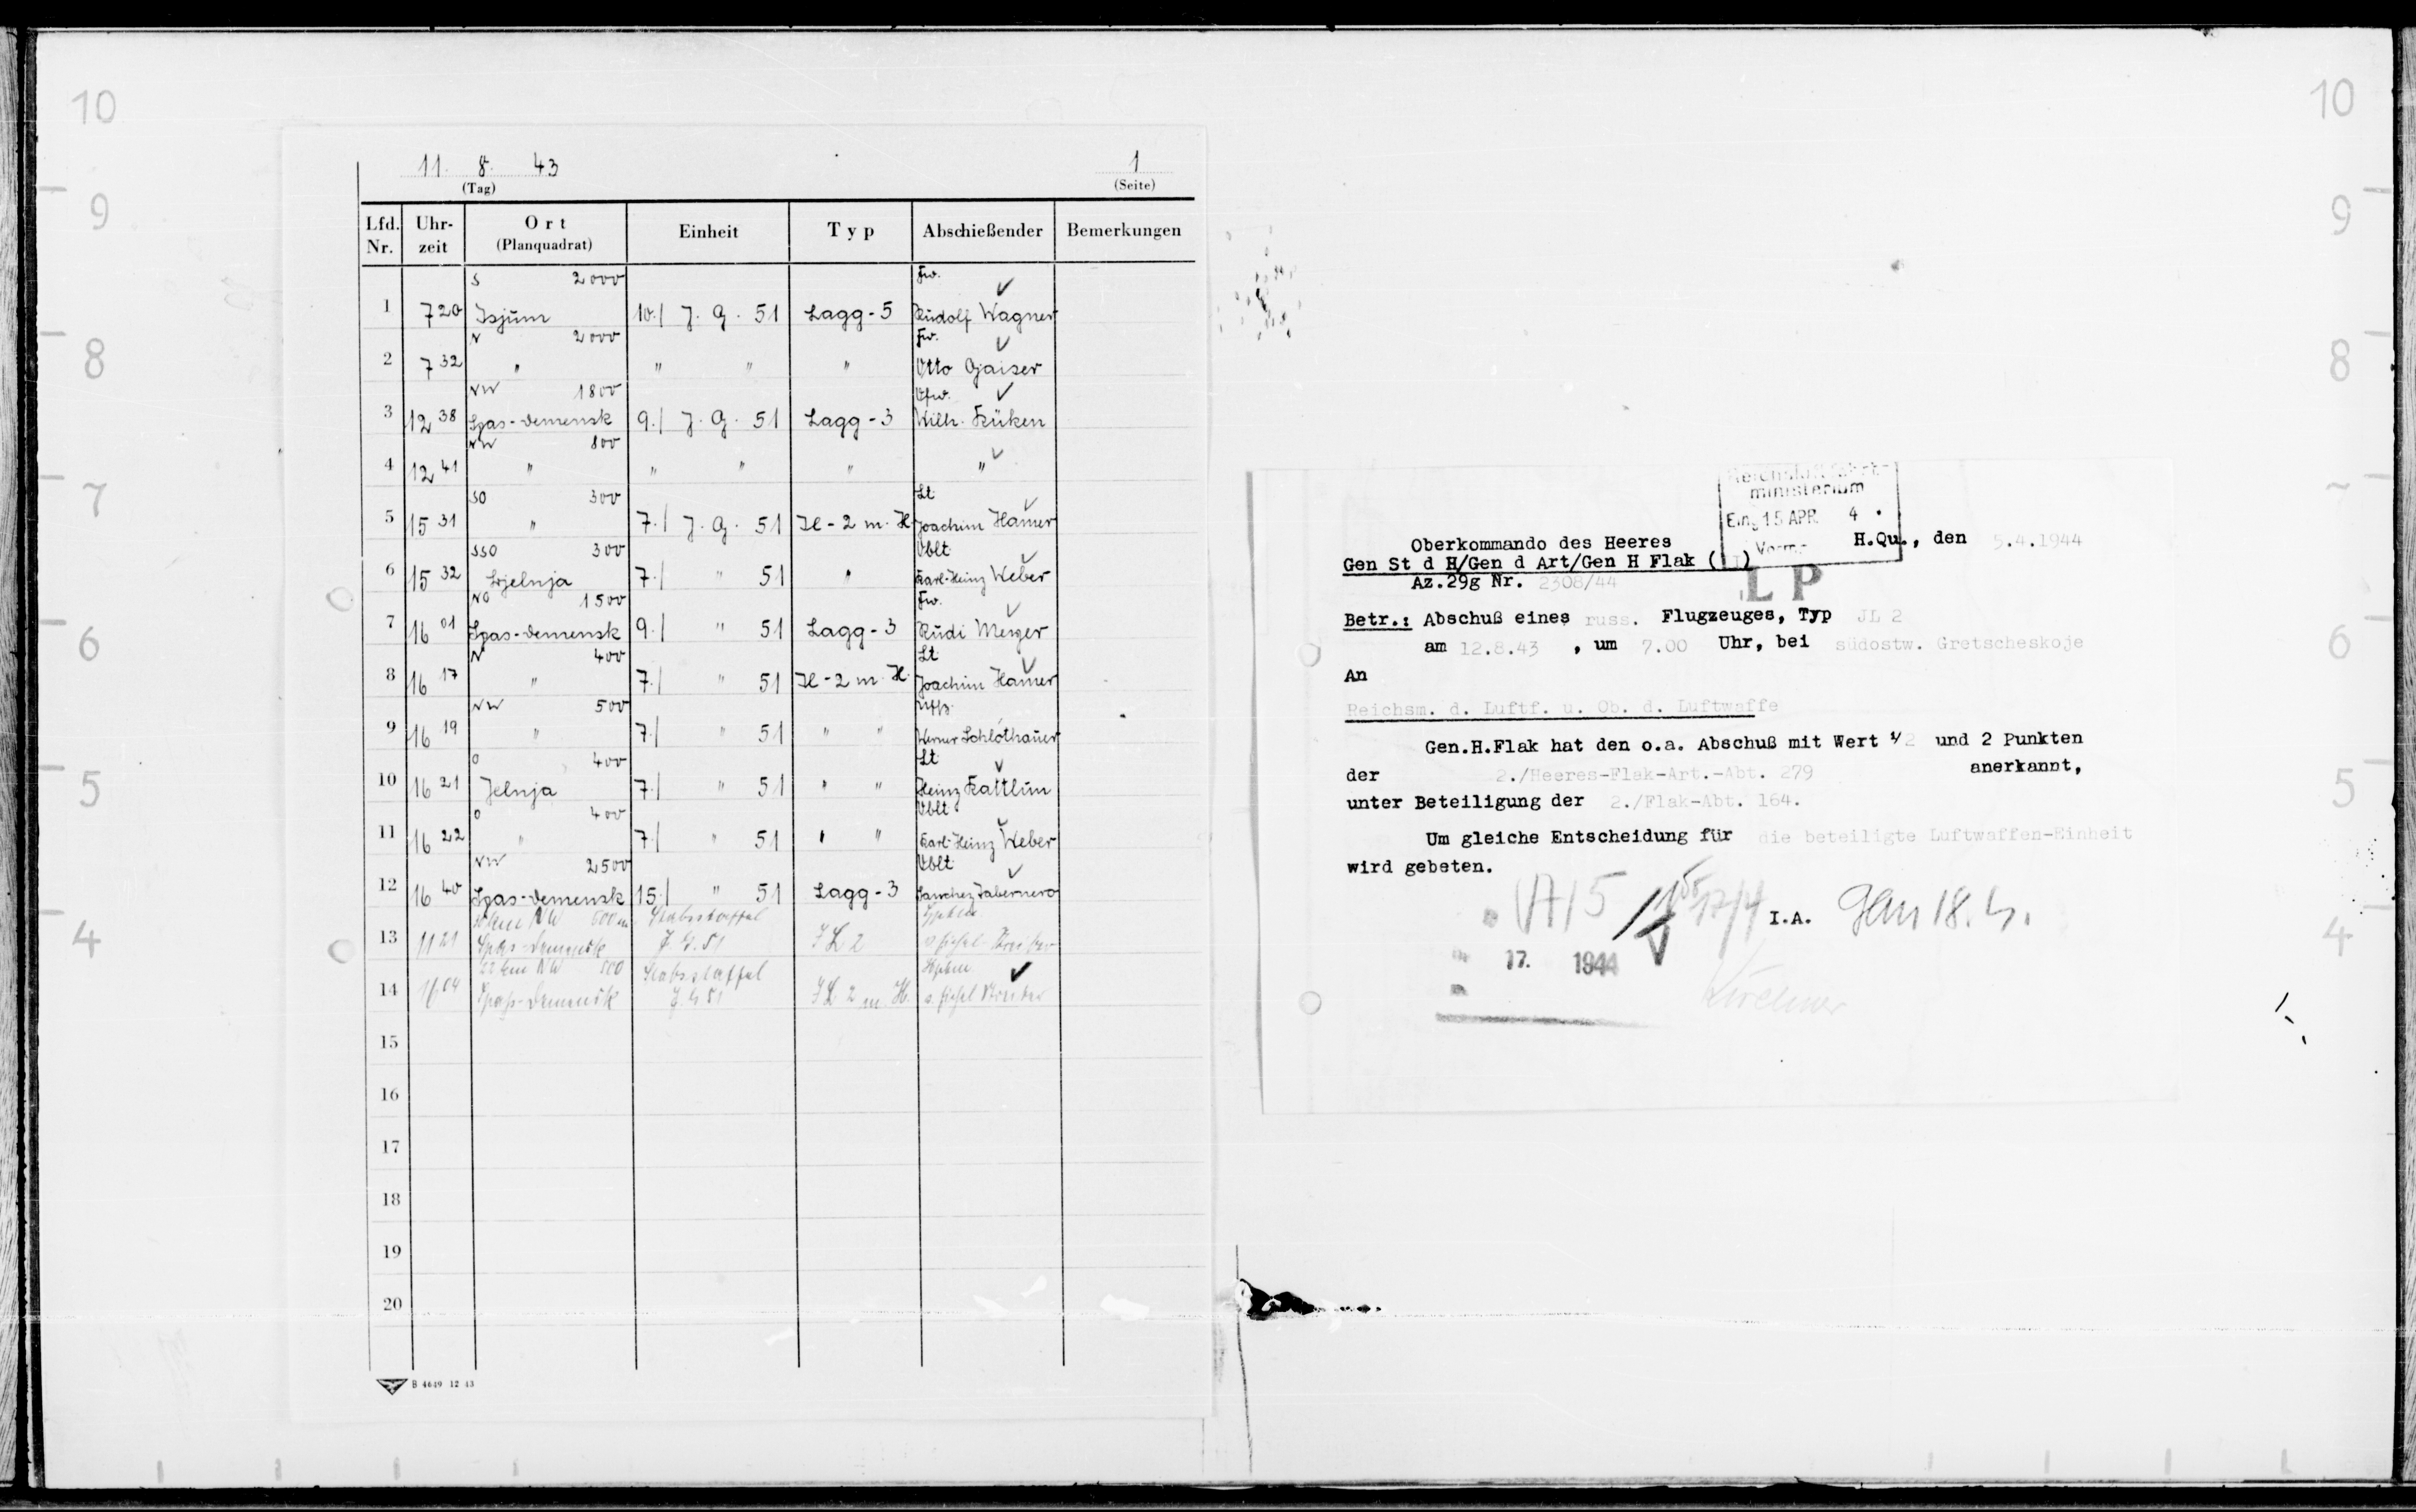 10
9
8
7
6
5
4
11. 8. 43
(Tag)
1
(Seite)
Lfd. Nr. Uhr-zeit Ort (Planquadrat) Einheit Typ Abschießender Bemerkungen
S 2000 Fw. ✓
1 7 20 Isjum 10./ J. G. 51 Lagg-5 Rudolf Wagner
N 2000 Fw. ✓
2 7 32 " " " " Otto Gaiser
NW 1800 Ofw. ✓
3 12 38 Spas-Demensk 9./ J. G. 51 Lagg-3 Wilh. Küken
NW 800
4 12 41 " " " " " ✓
SO 300 Lt ✓
5 15 31 " 7./ J. G. 51 Il-2 m. H. Joachim Hamer
SSO 300 Oblt ✓
6 15 32 Jelnja 7./ " 51 " Karl-Heinz Weber
NO 1500 Fw. ✓
7 16 01 Spas-Demensk 9./ " 51 Lagg-3 Rudi
N 400 Lt ✓
8 16 17 " 7./ " 51 Il-2 m. H. Joachim Hamer
NW 500 Uffz.
9 16 19 " 7./ " 51 " " Werner Schlothauer
O 400 Lt ✓
10 16 21 Jelnja 7./ " 51 " " Heinz Kattlun
O 400 Oblt ✓
11 16 22 " 7./ " 51 " " Karl-Heinz Weber
NW 2500 Oblt ✓
12 16 40 Spas-Demensk 15./ " 51 Lagg-3 Sanchez Tabernero
NW 500 m Stabsstaffel
13 11 21 Spas-Demensk J.G. 51 JL 2
22 km NW 500 Stabsstaffel ✓
14 Spas-Demensk J.G. 51 JL 2 m. H.
15
16
17
18
19
20
B 4649 12 43
10
9
8
6
5
4
Reichsluftfahrt-
ministerium
Eing 15 APR. 4
Oberkommando des Heeres H.Qu., den 5.4.1944
Gen St d H/Gen d Art/Gen H Flak
Az.29g Nr. 2308/44
L P
Betr.: Abschuß eines russ. Flugzeuges, Typ JL 2
am 12.8.43 , um 7.00 Uhr, bei südostw. Gretscheskoje
An
Reichsm. d. Luftf. u. Ob. d. Luftwaffe
Gen.H.Flak hat den o.a. Abschuß mit Wert 1/2 und 2 Punkten
der 2./Heeres-Flak-Art.-Abt. 279 anerkannt,
unter Beteiligung der 2./Flak-Abt. 164.
Um gleiche Entscheidung für die beteiligte Luftwaffen-Einheit
wird gebeten.
I.A. 18.4.
17. 1944